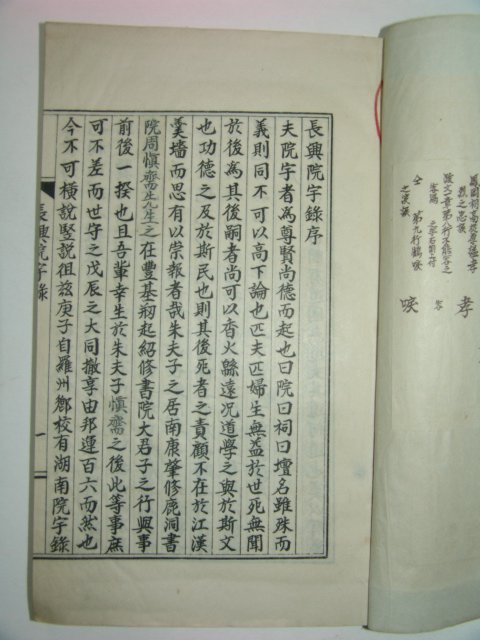 長興院宇錄序
夫院宇者爲尊賢尚德而起也曰院曰祠曰壇名雖殊而
義則同不可以高下論也匹夫匹婦生無益於世死無聞
於後爲其後嗣者尚可以香火緜遠况道學之與於斯文
也功德之及於斯民也則其後死者之責顧不在於江漢
羹墻而思有以崇報者哉朱夫子之居南康肇修鹿洞書
院周愼齋先生之在豊基刱起紹修書院大君子之行興事
前後一揆也且吾輩幸生於朱夫子愼齋之後此等事庶
可不差而世守之戊辰之大同撤享由邦運百六而然也
今不可橫說竪說徂玆庚子自羅州鄕校有湖南院宇錄
長興院宇錄
一
孝
唳
仝 第九行鶴唳